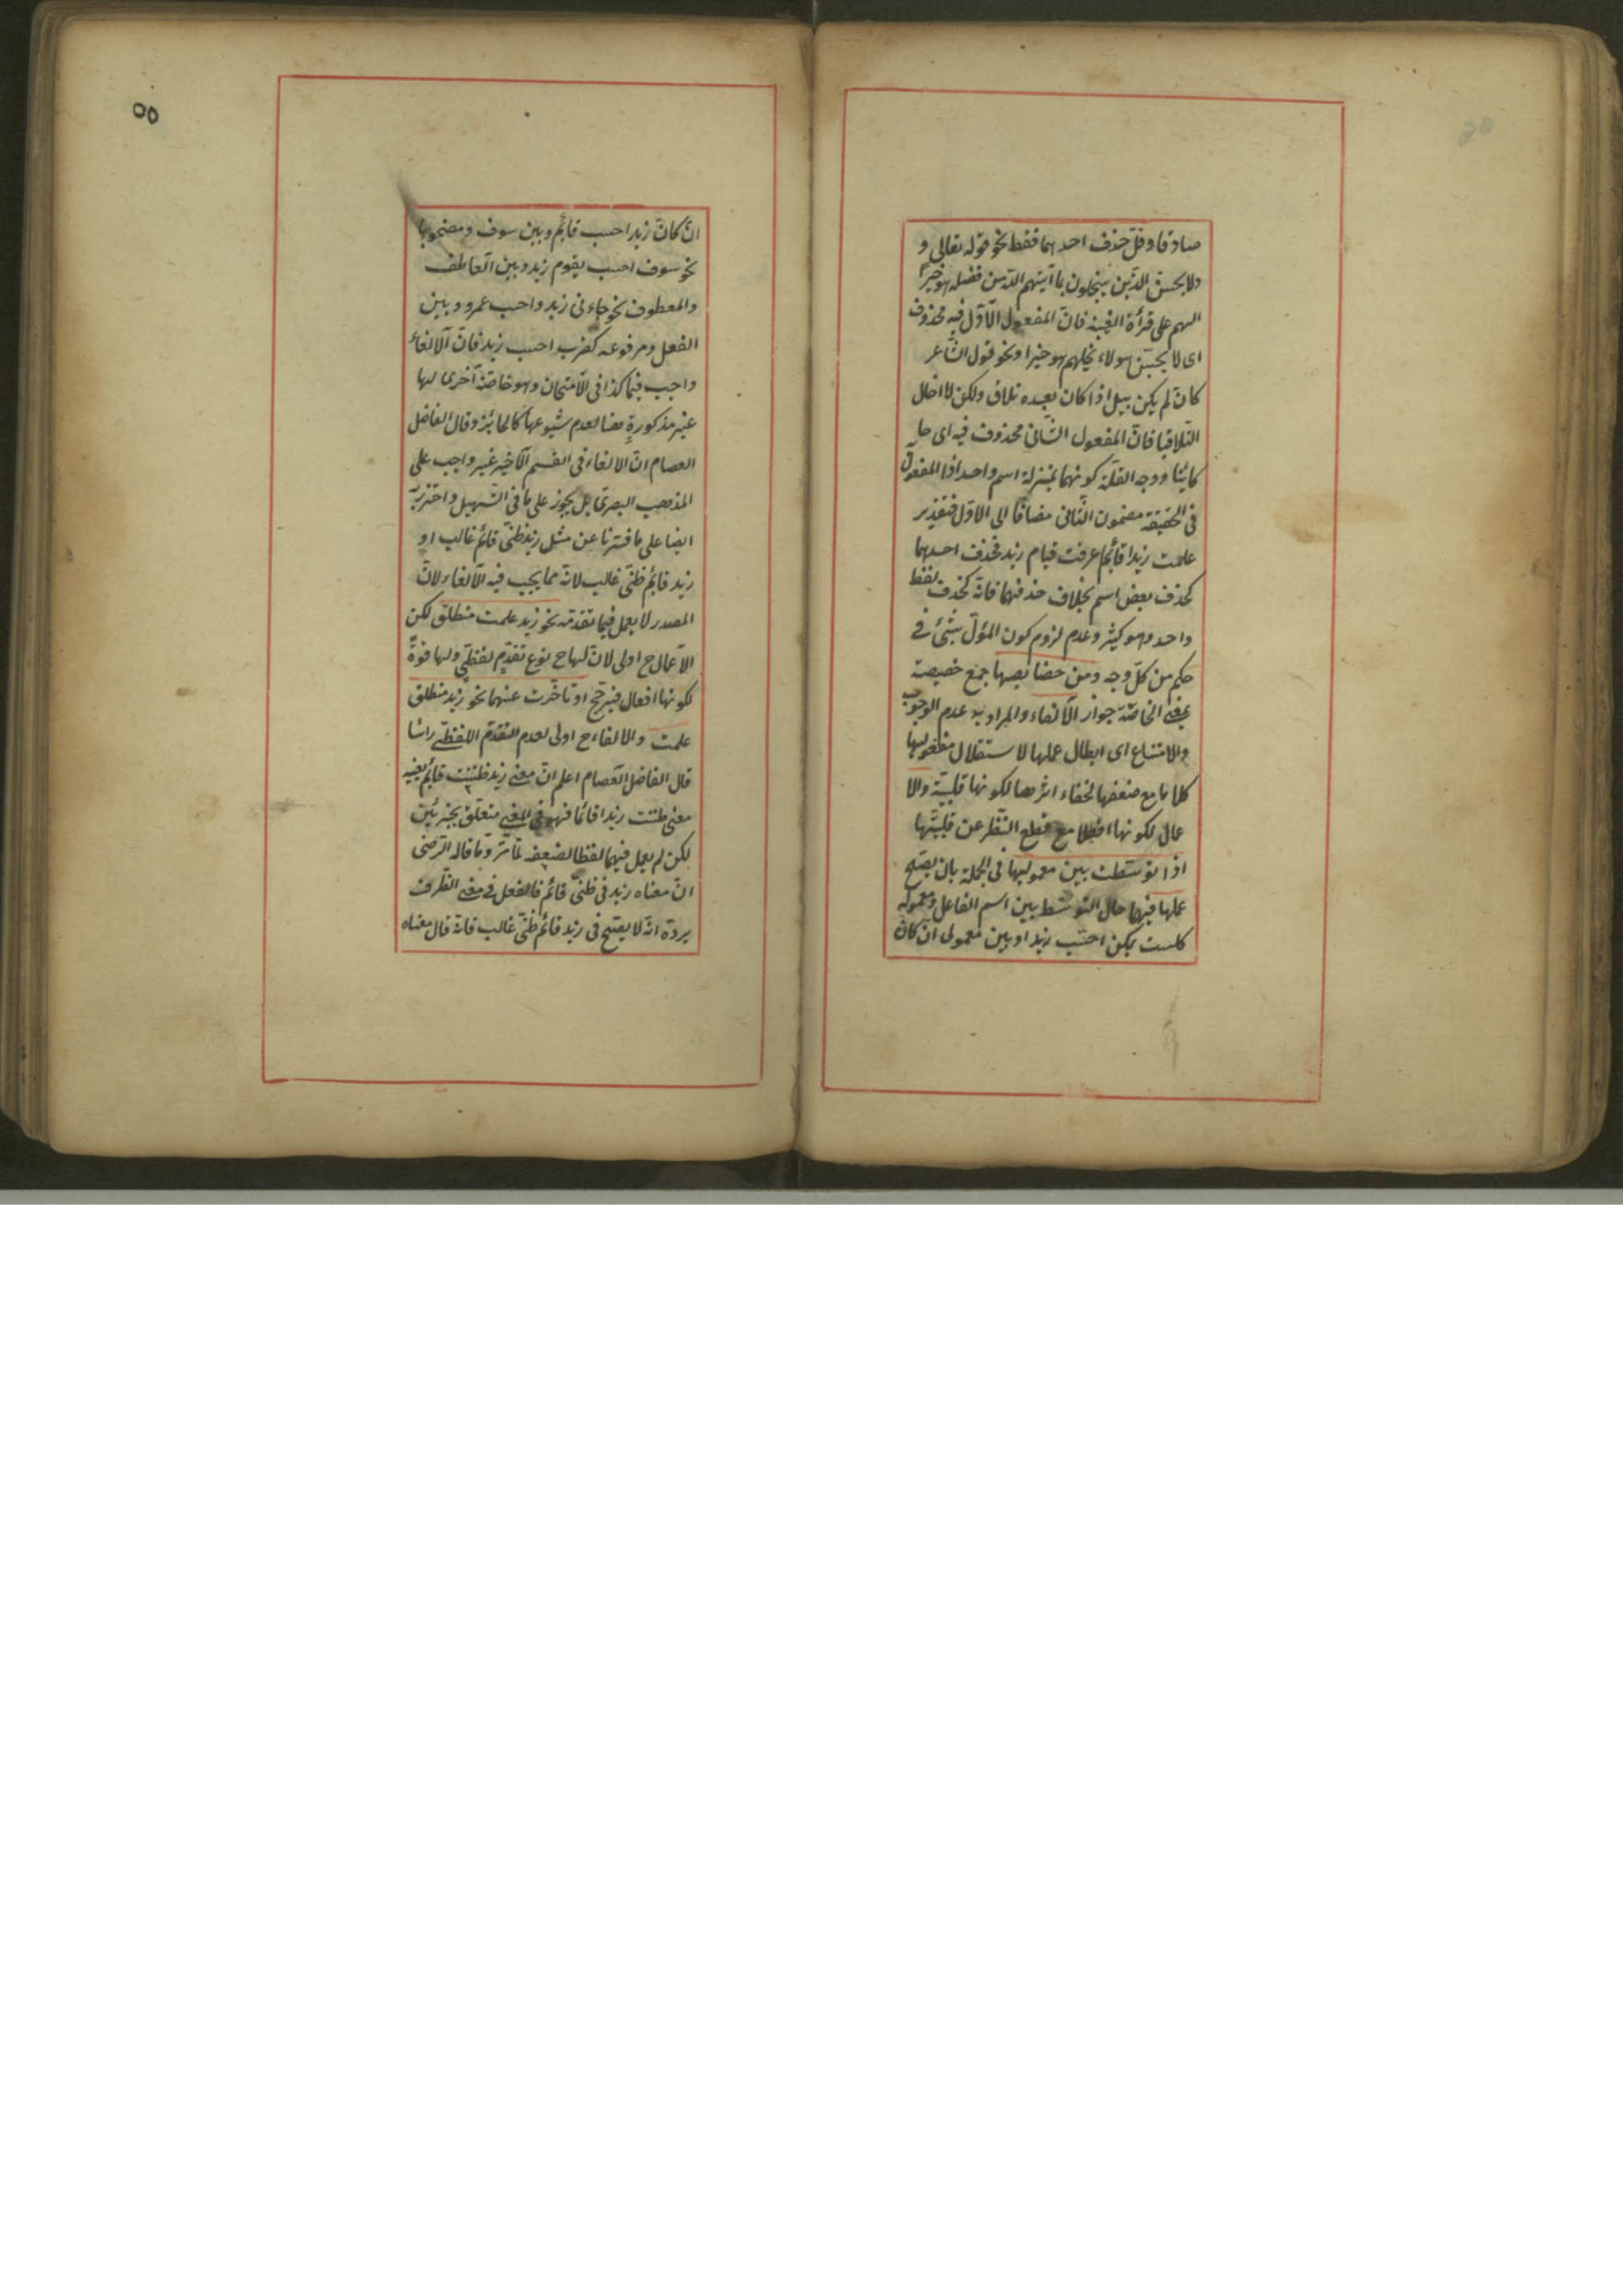 صادقا وقلّ حذف احدهما فقط نحو قوله تعالى و
ولا يحسبنّ الذّين يبخلون بما آتيهم اللّه من فضله هو خيرًا
لهم على قرأة الغيبة فانّ المفعول الاّوّل فيه محذوف
اى لا يحسبّن هولاء بخلهم هو خيرا ونحو قول الشّاعر
كان لم يكن بين اذا كان بعيده تلاق ولكن لا اخال
التّلاقيا فانّ المفعول الثّانى محذوف فيه اى
كاينا ووجه القلّة كونهما بمنزلة اسم واحد اذا المفعول
فى الحقيقة مضمون الثّانى مضافا الى الاوّل فتقدير
علمت زيدا قائما عرفت قيام زيد فحذف احدهما فقط
كحذف بعض اسم بخلاف حذفهما فانّه كحذف
واحد وهو كثير وعدم لزوم كون المؤلّ بشئ فى
حكم من كلّ وجه ومن خصايصها جمع خصيصة
بمعنى الخاصّة جواز الالغاء والمراد به عدم الوجوب
والامتناع اى ابطال عملها لاستقلال مفعوليها
كلاما مع ضعفها لخفاء اثرها لكونها قلبيّة والا
عمال لكونها افعالا مع قطع النّظر عن قلبيّتها
اذا توسّطت بين معموليها فى الجملة بان يصّح
عملها فيهما حال التوسّط بين اسم الفاعل ومعموله
كلست بمكن احسب زيدا وبين معمولى ان كان
٥٥
انّ كانّ زيدا حسب قائم وبين سوف ومصحوبها
نحو سوف احسب يقوم زيد وبين العاطف
والمعطوف نحو جاءنى زيد واحسب عمرو وبين
الفعل ومرفوعه كضرب احسب زيد فانّ الالغاء
واجب فيها كذا فى الامتحان وهو خاصّة اخرى لها
غير مذكورة هنا لعدم شيوعها كالجائز وقال الفاضل
العصام انّ الالغاء فى القسم الاخير غير واجب على
المذهب البصرىّ بل يجوز على ما فى التّسهيل واحترزّ
ايضا على ما فسّرنا عن مثل زيد ظنّى قائم غالب او
زيد قائم ظنّى غالب لانّه مما يجب فيه الالغاء لانّ
المصدر لا يعمل فيما تقدّمه نحو زيد علمت منطلق لكن
الاعمال ح اولى لانّ لها ح نوع تقدّم لفظّى ولها قوّة
لكونها افعال فيترجّح او تاخّرت عنهما نحو زيد منطلق
علمت والالغاء ح اولى لعدم التقدّم اللفظّى راسًا
قال الفاضل العصام اعلم انّ معنى زيد ظننت قائم بعينه
معنى ظننت زيدا قائما فهو فى المعنى متعلّق بجزئين
لكن لم يعمل فيهما لفظا لضعفه لما مّر وما قاله الرّضى
انّ معناه زيد فى ظنّى قائم فالفعل فى معنى الظّرف
يردّه انّه لا يصّح فى زيد قائم ظنّى غالب فانّه قال معناه